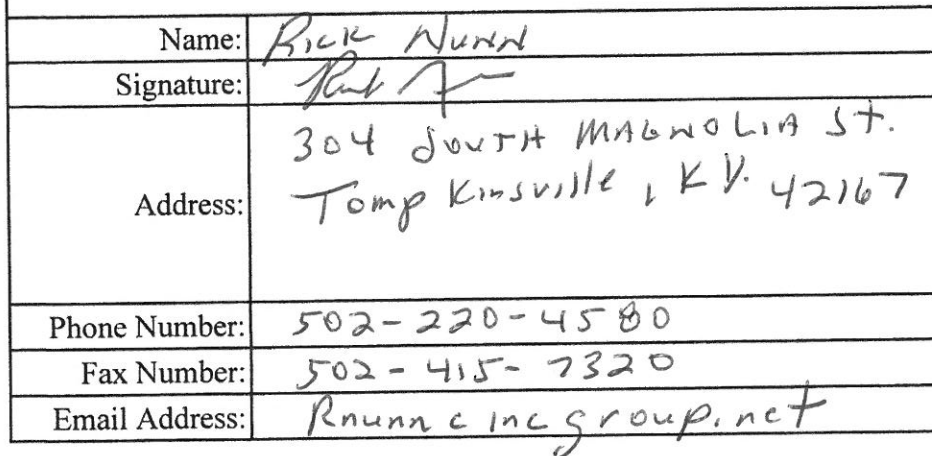 Name: Rick Nunn
Signature:
304 South Magnolia St.
Address: Tompkinsville, KY. 42167
Phone Number: 502-220-4580
Fax Number: 502-415-7320
Email Address: Rnunn@incgroup.net